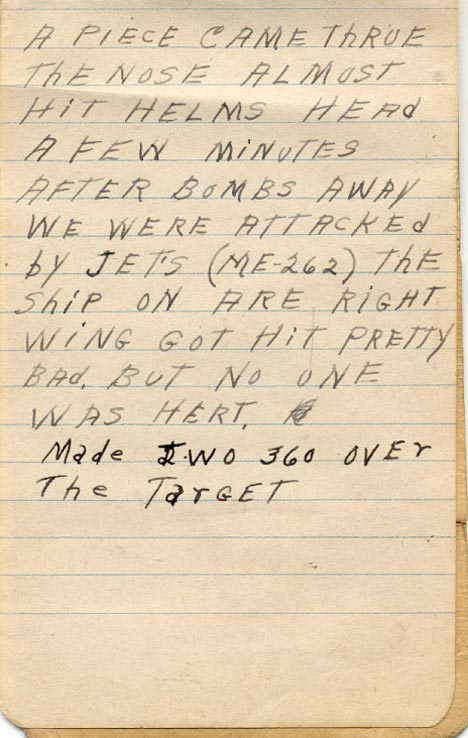 A PIECE CAME ThRUE
THE NOSE ALMOST
HiT HELMS HEAd
A FEW MiNUTES
AFTER BOMBS AWAY
WE WERE ATTACKEd
by JET'S (ME-262) ThE
ShiP ON ARE RiGHT
WiNG GOT HiT PRETTY
BAd, BUT NO ONE
WAS HERT.
Made TWO 360 OVEr
The TarGET